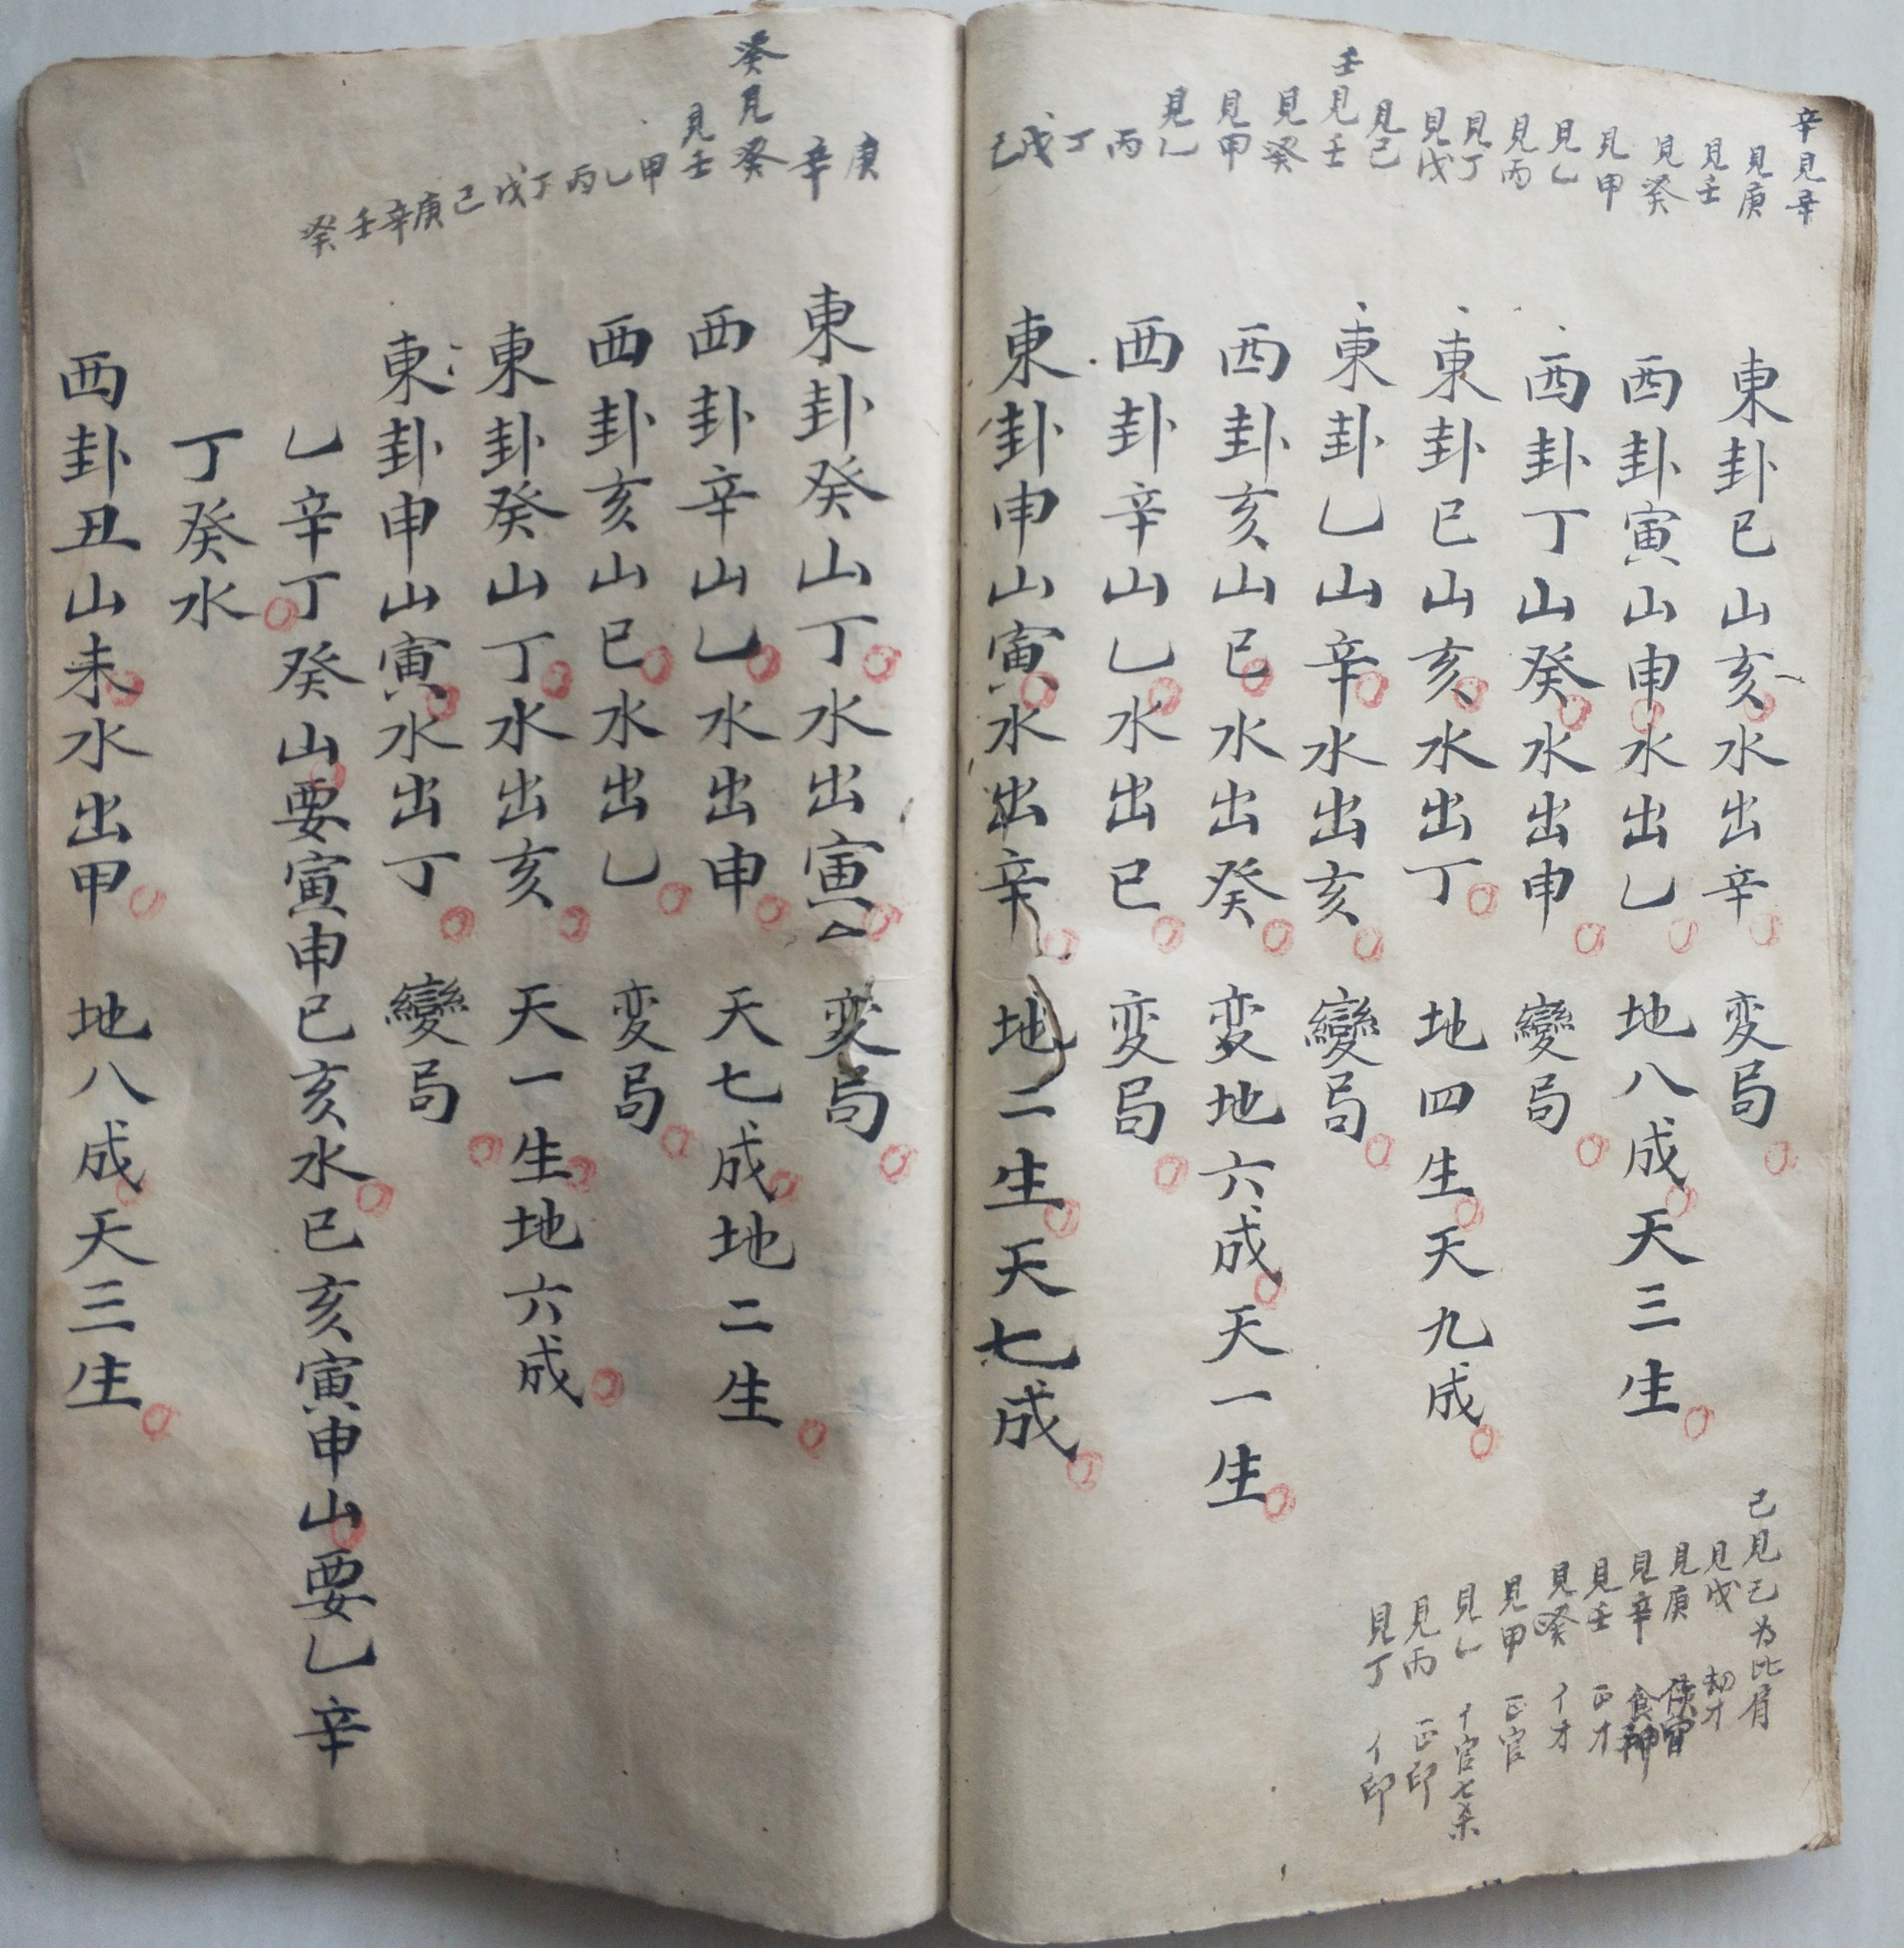 辛見辛
見庚
見壬
見癸
見甲
見乙
見丙
見丁
見戊
見己
壬見壬
見癸
見甲
見乙
丙
丁
戊
己
東卦巳山亥水出辛 変局
西卦寅山申水出乙 地八成天三生
西卦丁山癸水出申 變局
東卦巳山亥水出丁 地四生天九成
東卦乙山辛水出亥 變局
西卦亥山巳水出癸 変地六成天一生
西卦辛山乙水出巳 変局
東卦申山寅水出辛 地二生天七成
己見己为比肩
見戊 劫才
見庚
見辛 食神
見壬 正才
見癸 亻才
見甲 正官
見乙 亻官七杀
見丙 正印
見丁 亻印
庚
辛
癸見癸
見壬
甲
乙
丙
丁
戊
己
庚
辛
壬
癸
東卦癸山丁水出寅 変局
西卦辛山乙水出申 天七成地二生
西卦亥山巳水出乙 変局
東卦癸山丁水出亥 天一生地六成
東卦申山寅水出丁 變局
乙辛丁癸山要寅申巳亥水巳亥寅申山要乙辛
丁癸水
西卦丑山未水出甲 地八成天三生